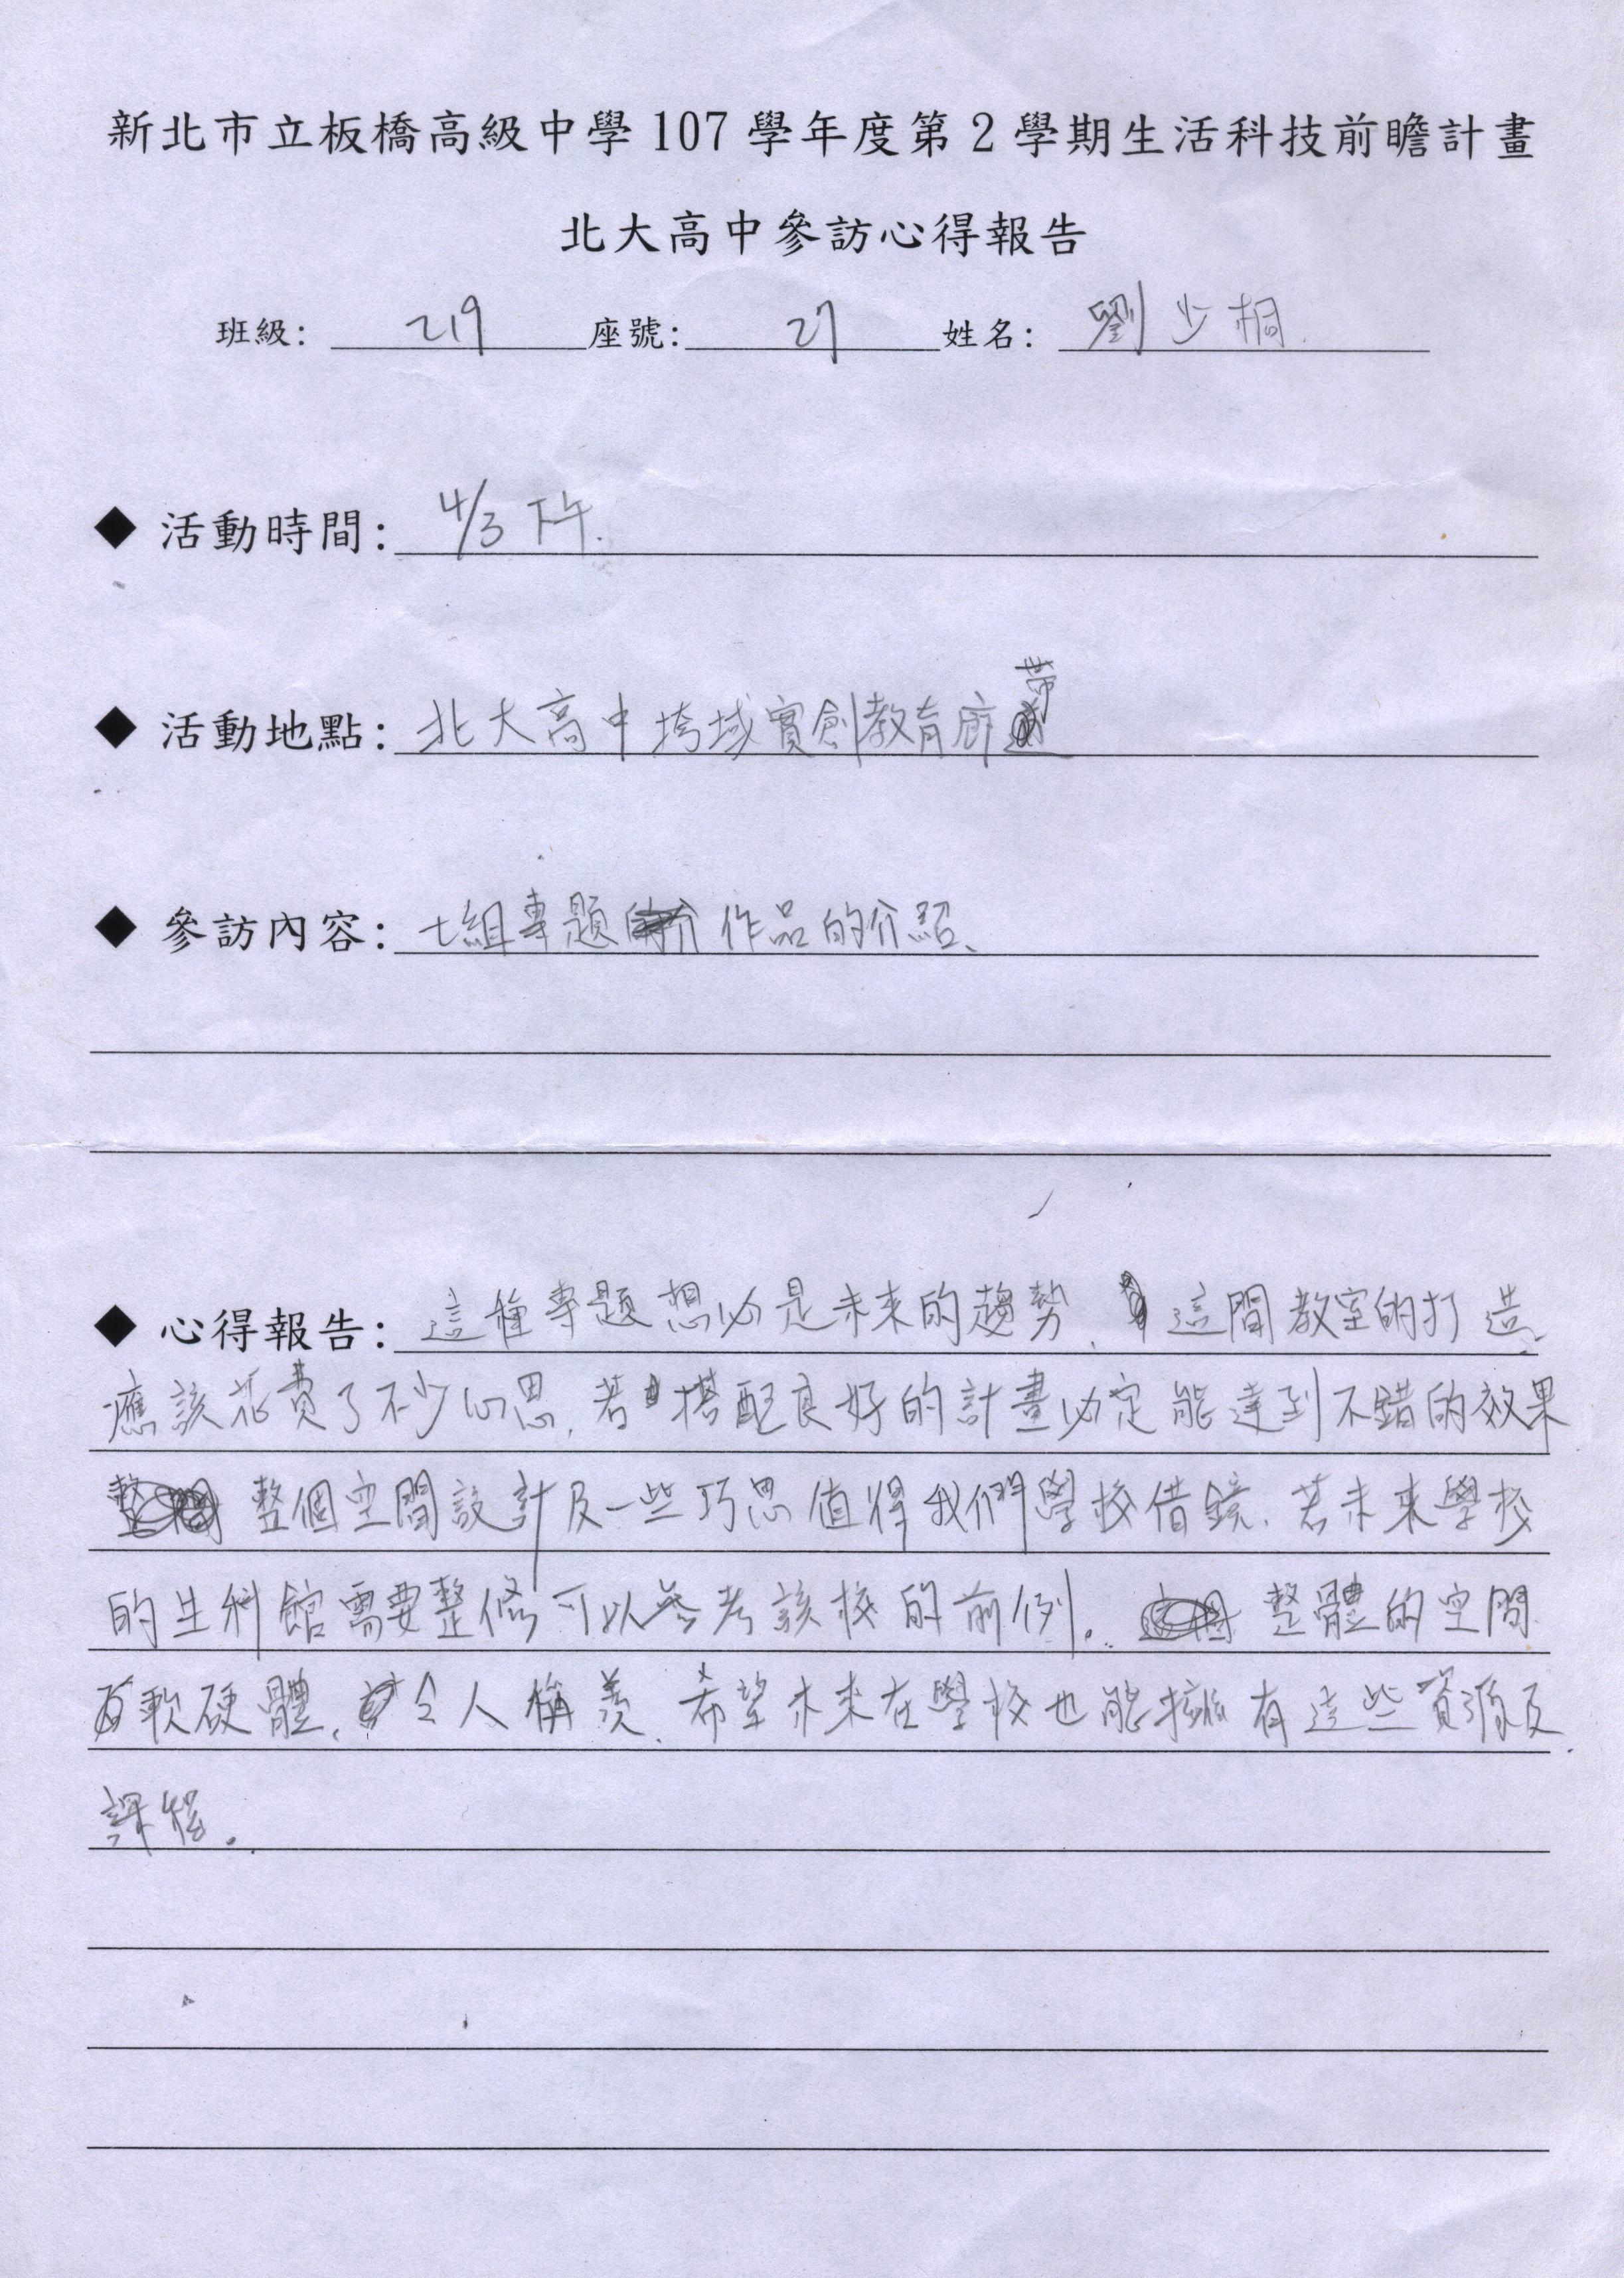 新北市立板橋高級中學 107 學年度第 2 學期生活科技前瞻計畫
北大高中參訪心得報告
班級: 219 座號: 27 姓名: 劉少桐
◆ 活動時間: 4/3 下午.
◆ 活動地點: 北大高中垮域實創教育廊帶
◆ 參訪內容: 七組專題作品的介紹、
◆ 心得報告: 這種專題想必是未來的趨勢、這間教室的打造、
應該花費了不少心思、若搭配良好的計畫必定能達到不錯的效果
整個空間設計及一些巧思值得我們學校借鏡、若未來學校
的生科館需要整修可以參考該校的前例。整體的空間
軟硬體、令人稱羨、希望未來在學校也能擁有這些資源及
課程。